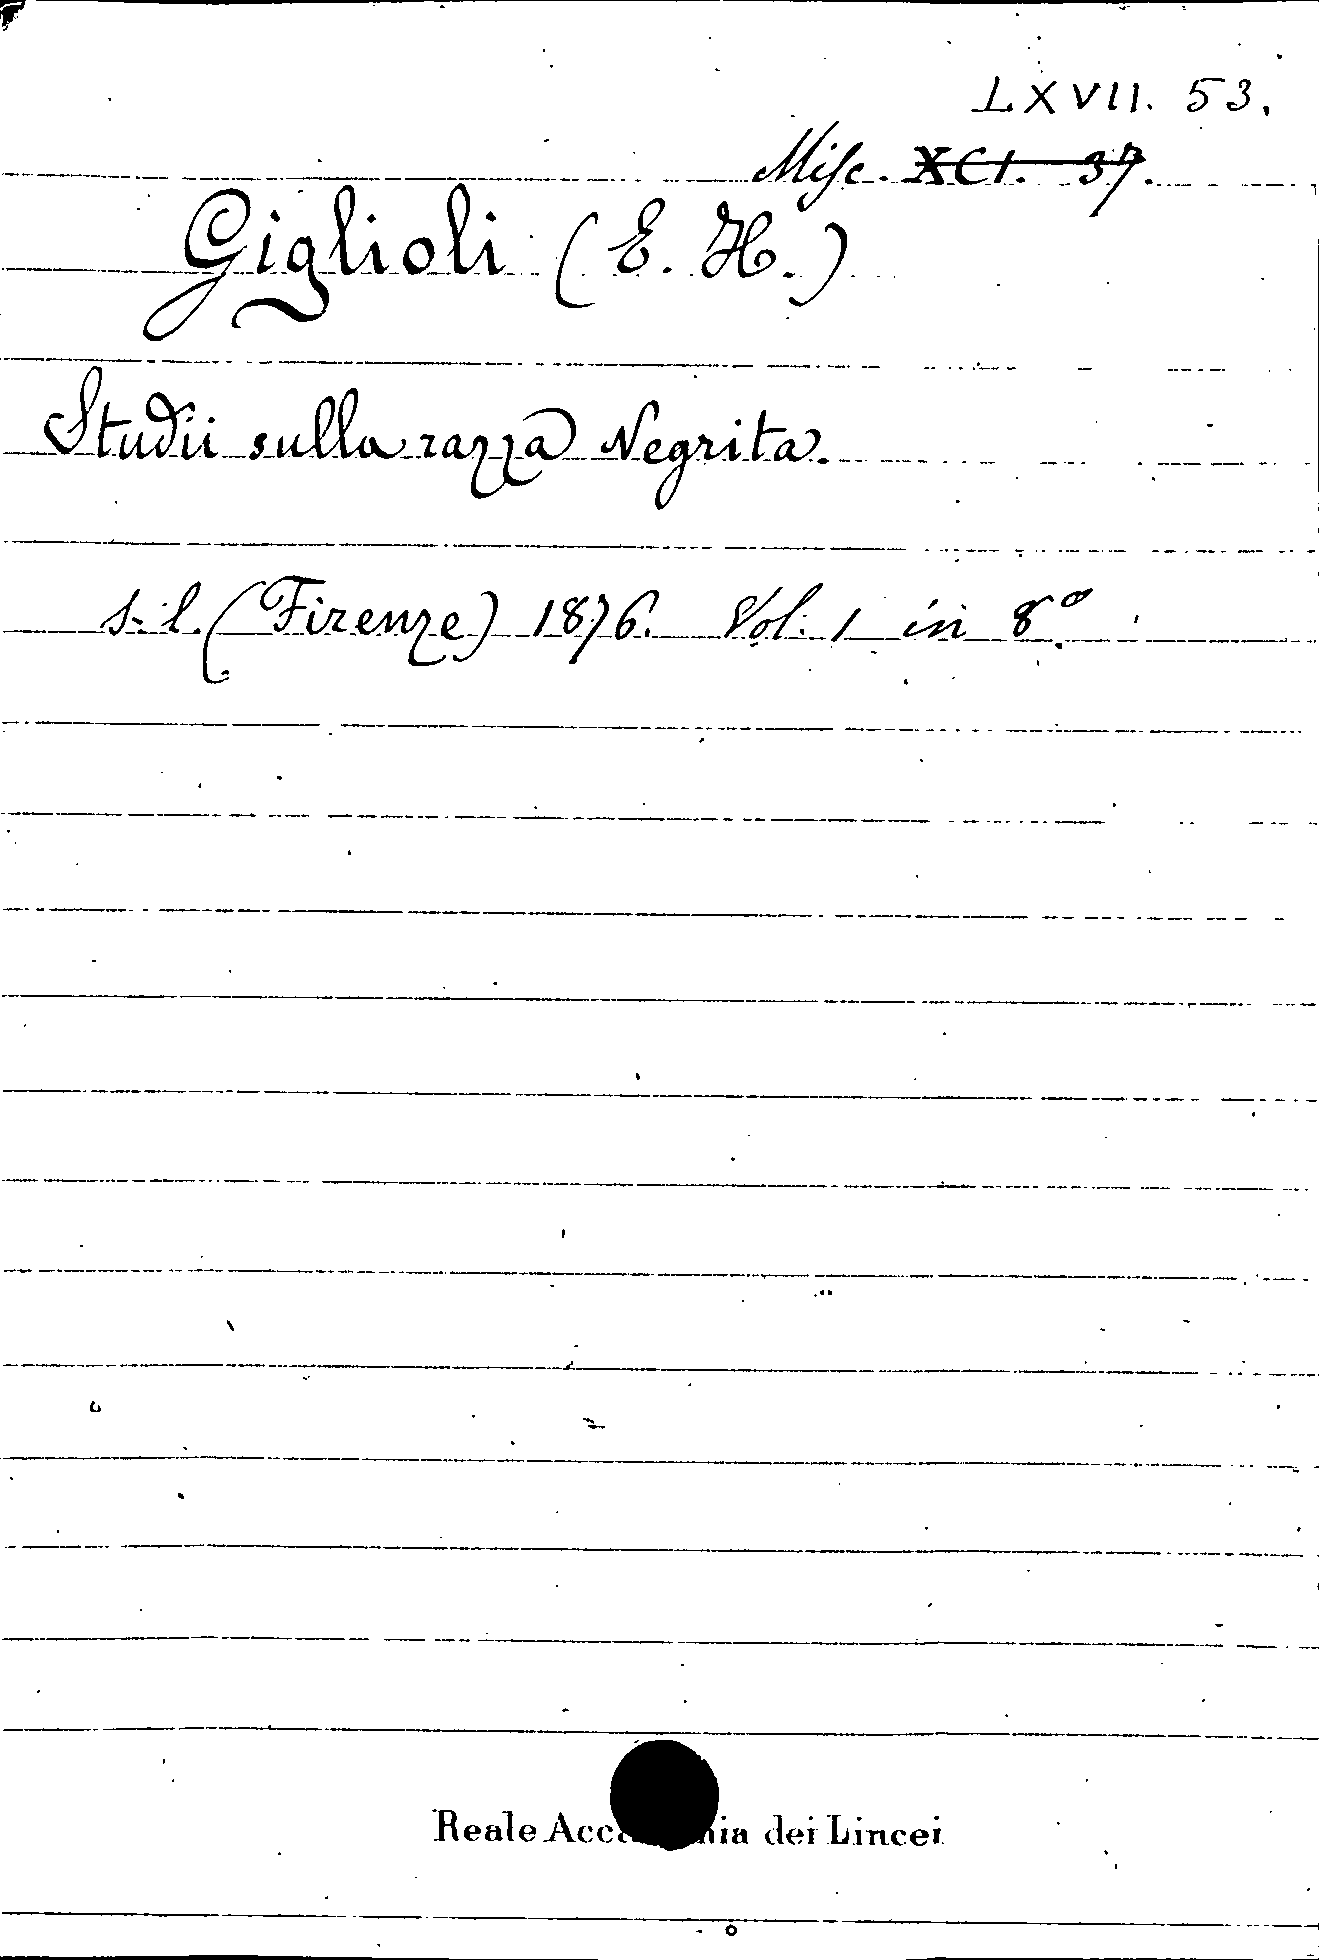 LXVII. 53.
Misc. XCI. 37.
Giglioli (E. H.)
Studii sulla razza Negrita.
s. l. (Firenze) 1876. Vol. 1 in 8º
Reale Accademia dei Lincei